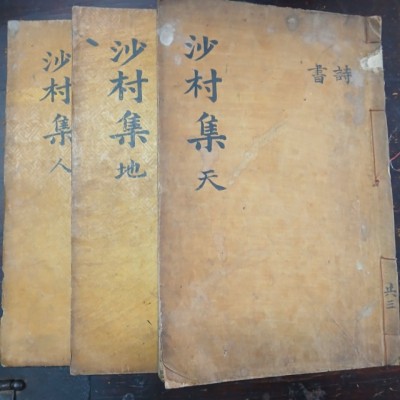 沙村集 天
詩書
共三
沙村集 地
沙村集 人